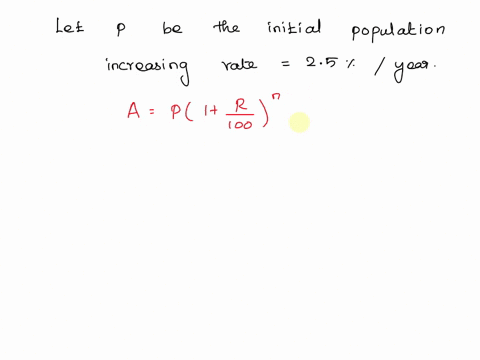 Let P be the initial population
increasing rate = 2.5% / year.
A = P(1 + R/100)^n